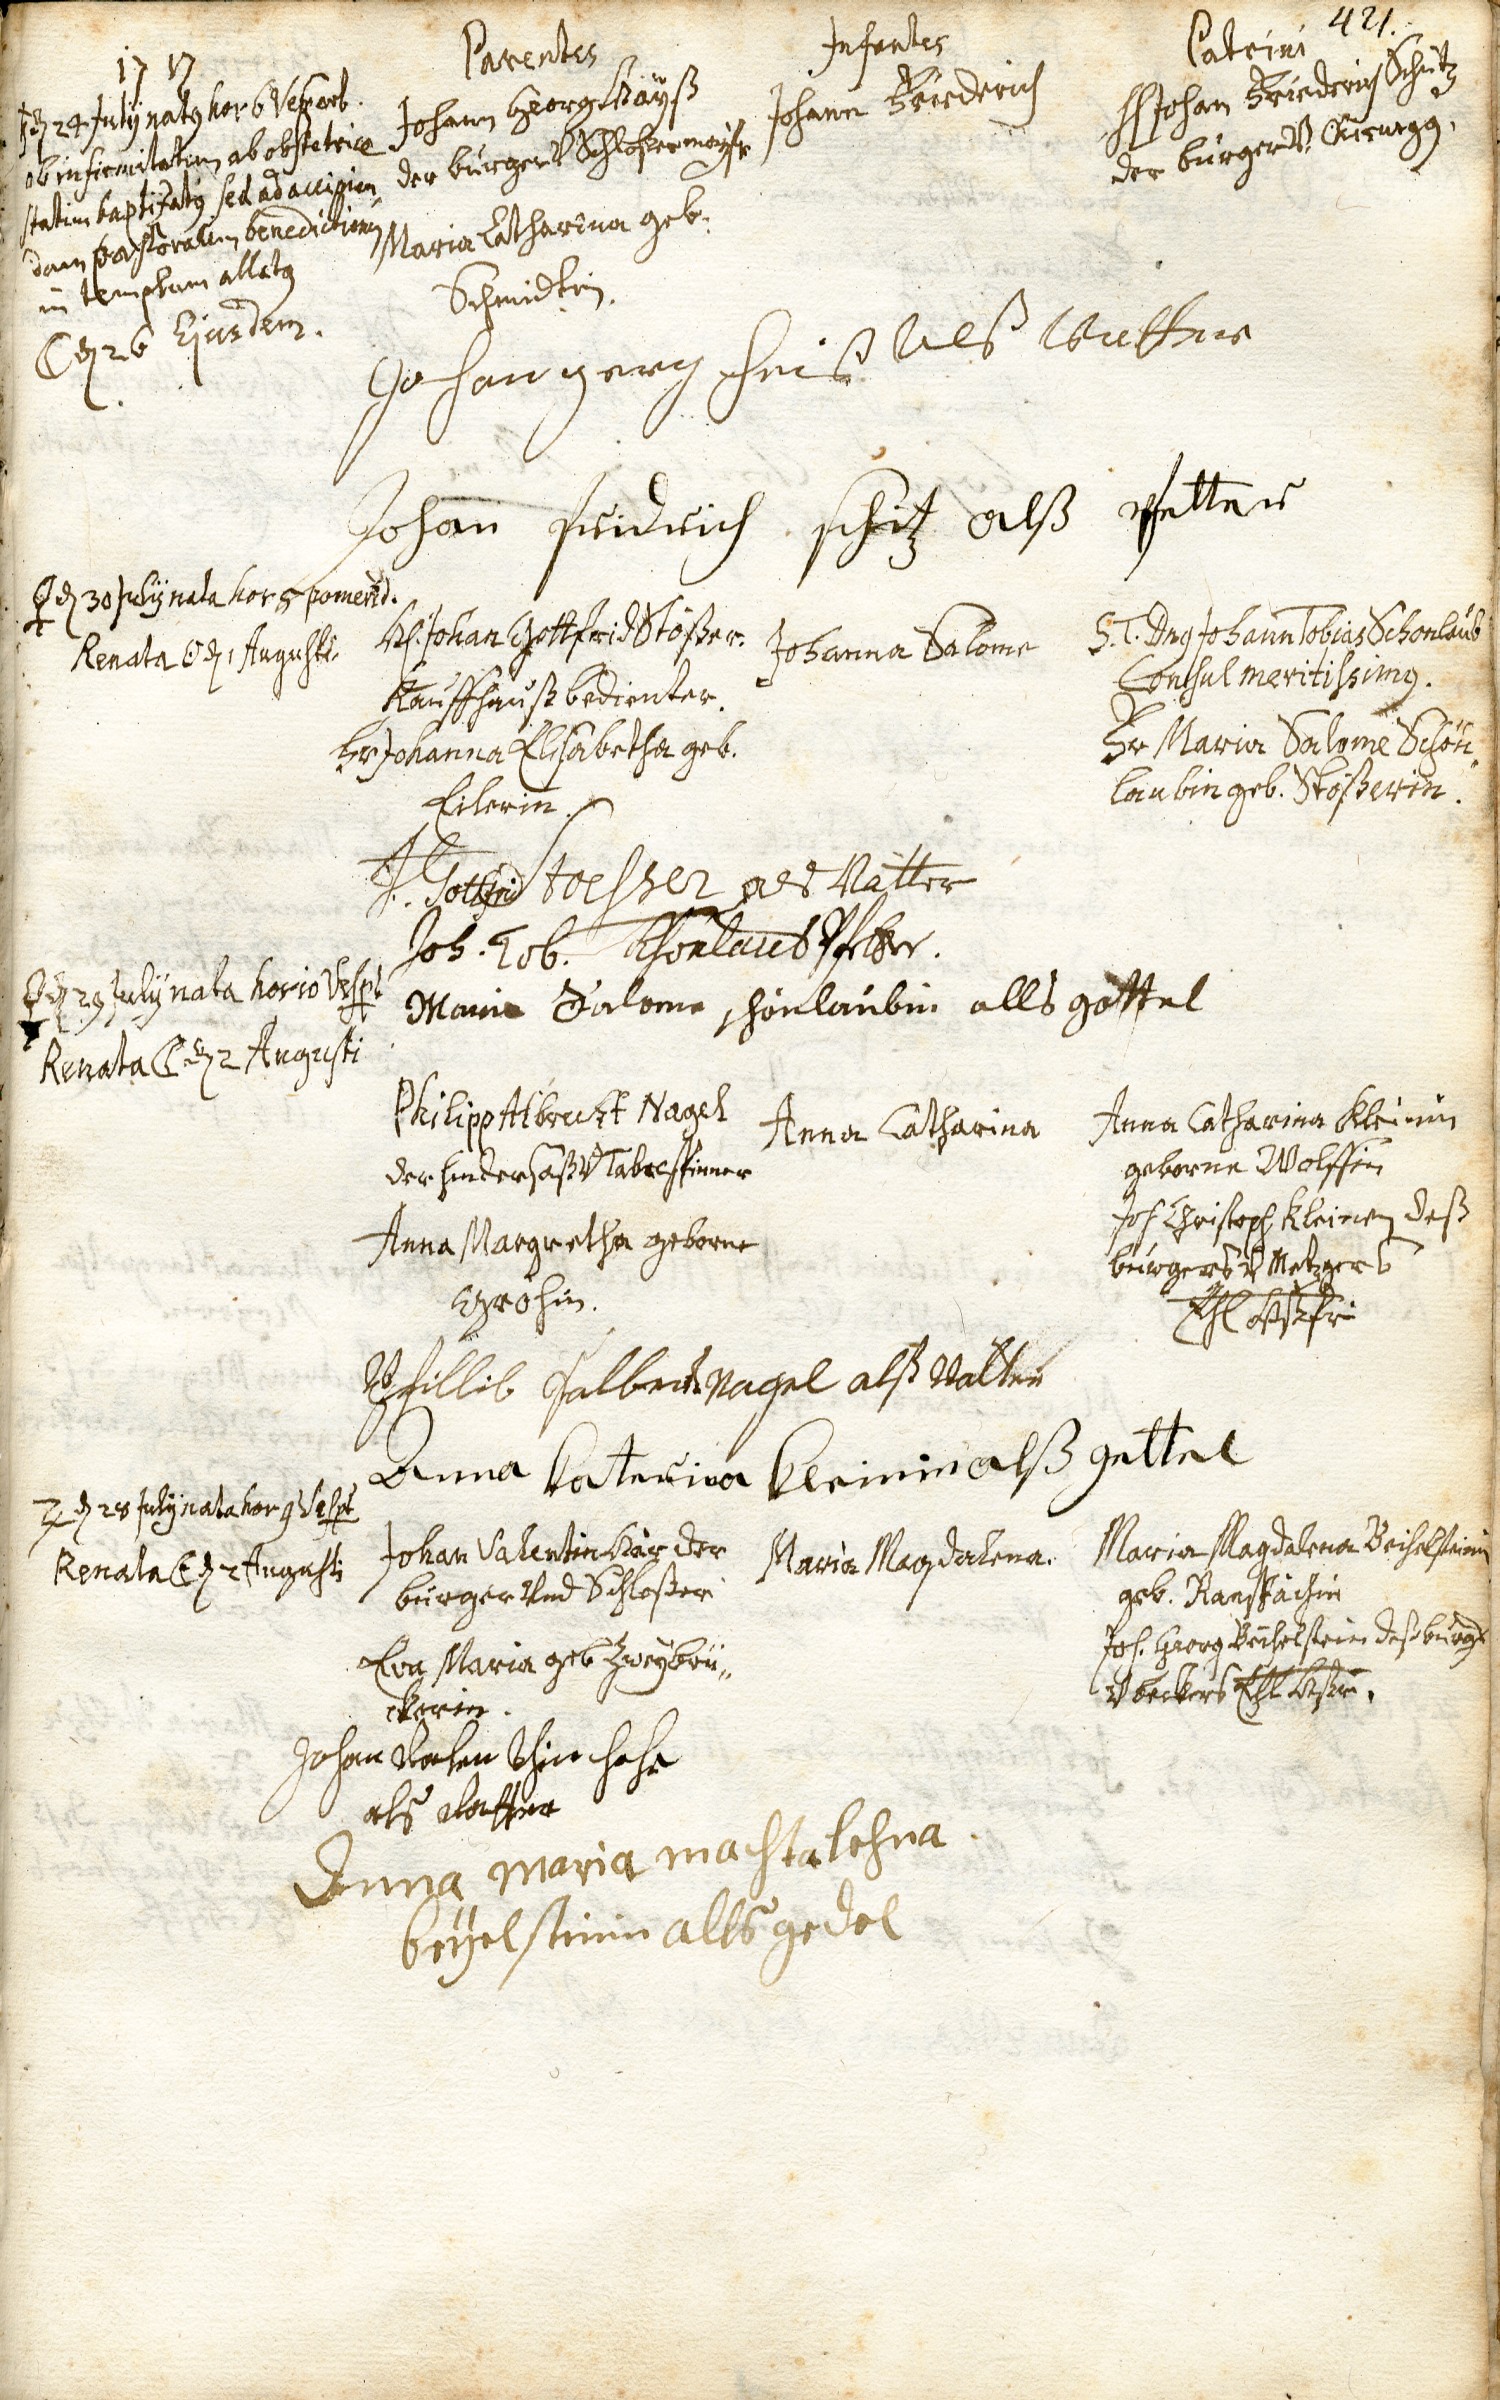 421.
1717
Parentes
Infantes
Patrini
♄ d 24 July natg hor 6 Vespert.
ob infirmitatem ab obstetrice
statim baptisatg sed ad accipien
dam pastoralem benedictionem
in templum allatg
☾ d 26 Ejusdem.
Johann Georg Häyß
der burger V Schloßermeister
Maria Catharina geb.
Schmidtin.
Johann Friederich
H Johan Friederich Schütz
der burger V. Chirurgg.
Johan gerg heiß als Vatter
Johan fridrich schitz alß pfetter
♀ d 30 July nata hor 5 pomerid.
Renata ☉ d 1 Augusti.
H. Johan Gottfrid Stößer.
Kauffhauß bedienter.
Fr Johanna Elisabetha geb.
Eilerin.
Johanna Salome
S. T. Dng Johann Tobias Schonlaub
Consul meritissimg.
Fr Maria Salome Schön„
laubin geb. Stößerin.
J. Gottfrid Stoesser als Vatter
Joh. Tob. Schönlaub Pfetter.
Maria Salome schönlaubin alls gottel
d 29 July nata hor 10 Vespt
Renata ☾ d 2 Augusti
Philipp Albrecht Nagel
der hindersaß V Tabacspinner
Anna Margretha geborne
Gröhin.
Anna Catharina
Anna Catharina Kleinin
geborne Wolffin
Joh Christoph Kleinen deß
burgers V Metzgers
Ehl haußfr
Pfillib Jalbert Nagel alß Vatter
Anna Katerina Kleinin alß gettel
d 28 July nata hor 9 Vespt
Renata ☾ d 2 Augusti
Johan Valentin Här der
burger Und Schloßer
Eva Maria geb Zweybrü„
ckerin.
Maria Magdalena.
Maria Magdalena Beichelsteinin
geb.
Joh. Georg Beichelstein deß burgs
V beckers Ehl haußfr.
Johan Valen thin hehr
als Vatter
Anna maria machtalehna
beijelstinin alls gedel